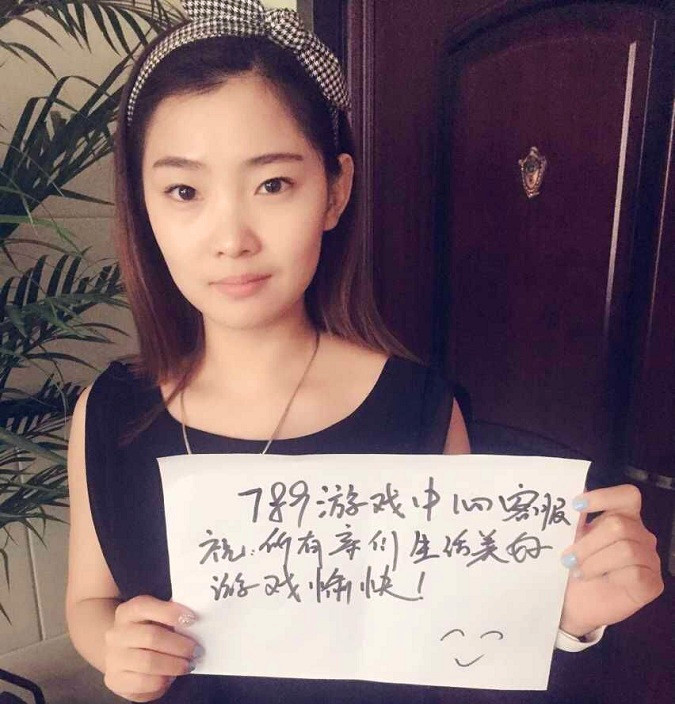 789游戏中心客服
祝:所有亲们生活美好
游戏愉快!